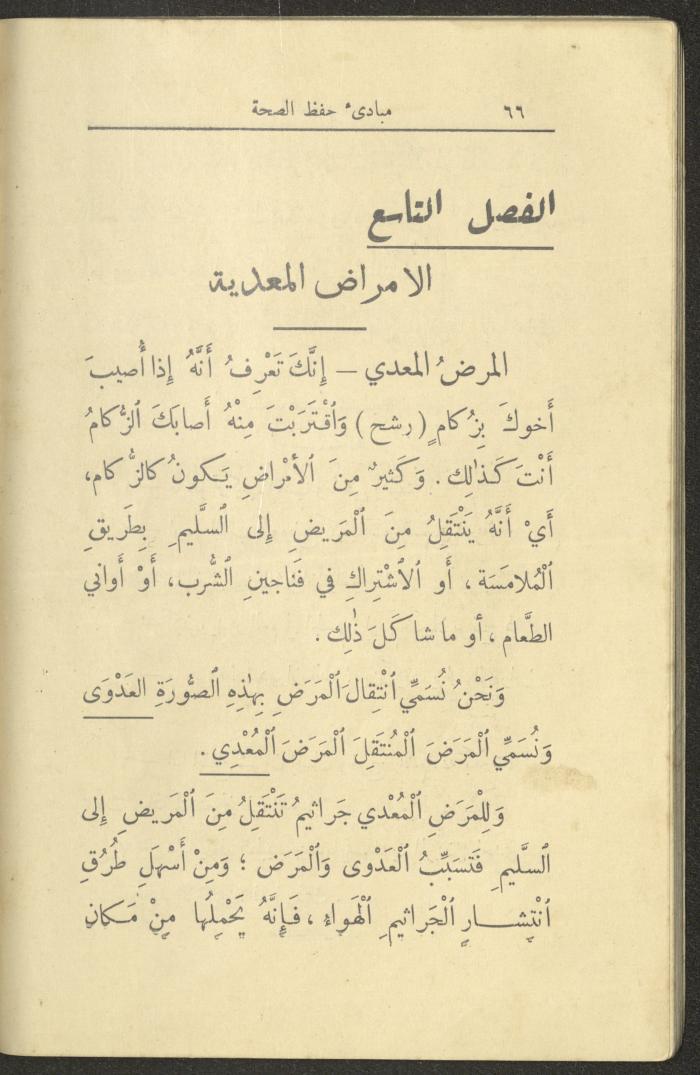 ٦٦ مبادئ حفظ الصحة
الفصل التاسع
الامراض المعدية
المرضُ المعدي – إِنَّكَ تَعْرِفُ أَنَّهُ إِذا أُصيبَ
أَخوكَ بِزُكامٍ (رشح) وَٱقْتَرَبْتَ مِنْهُ أَصابَكَ ٱلزُّكامُ
أَنْتَ كَذٰلِك. وَكَثيرٌ مِنَ ٱلأَمْراضِ يَكونُ كالزُّكام،
أَيْ أَنَّهُ يَنْتَقِلُ مِنَ ٱلْمَريضِ إِلى ٱلسَّليمِ بِطَريقِ
ٱلْمُلامَسَة، أَو ٱلاُشْتِراكِ في فَناجينِ ٱلشُّرب، أَوْ أَواني
الطَّعام، أو ما شاكَلَ ذٰلِك.
وَنَحْنُ نُسَمِّي ٱنْتِقالَ ٱلْمَرَضِ بِهٰذِهِ ٱلصُّورَةِ العَدْوَى
وَنُسَمِّي ٱلْمَرَضَ ٱلْمُنتَقِلَ ٱلْمَرَضَ ٱلْمُعْدِي.
وَلِلْمَرَضِ ٱلْمُعْدي جَراثيمُ تَنْتَقِلُ مِنَ ٱلْمَريضِ إِلى
ٱلسَّليمِ فَتسَبِّبُ ٱلْعَدْوى وَٱلْمَرَض؛ وَمِنْ أَسْهَلِ طُرُقِ
ٱنْتِشارِ ٱلْجَراثيمِ ٱلْهَواءُ، فَإِنَّهُ يَحْمِلُها مِنْ مَكانٍ